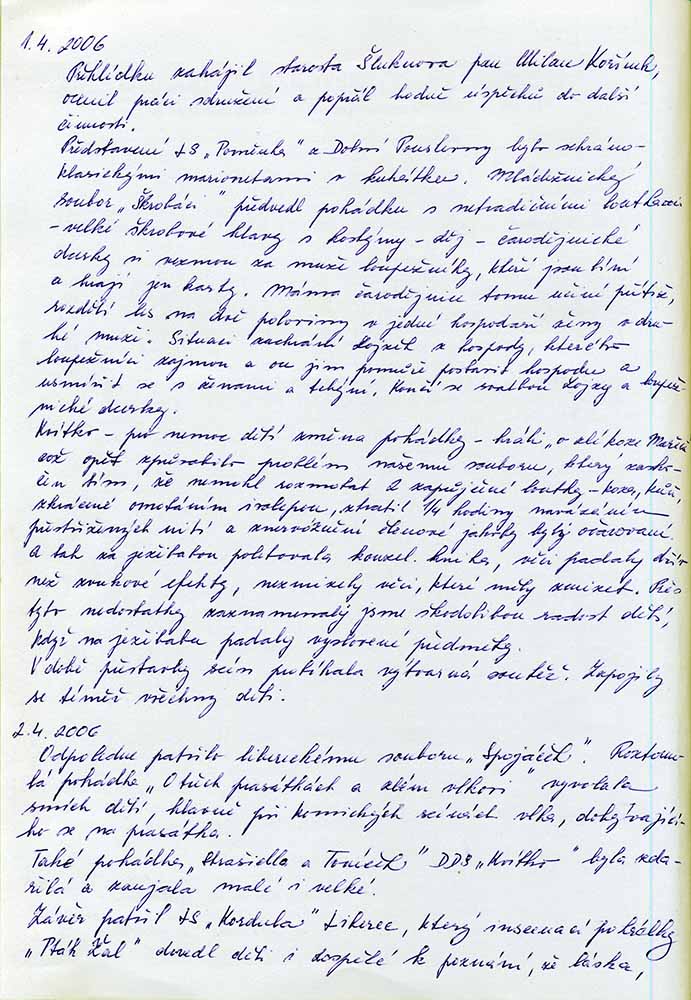 1. 4. 2006
Přehlídku zahájil starosta Šluknova pan Milan Kořínek,
ocenil práci sdružení a popřál hodně úspěchů do další
činnosti.
Představení LS „Pomněnka" z Dobré Pouslovny bylo sehráno
klasickými marionetami v kukátku. Mládežnický
soubor „Škrobáci" předvedl pohádku s netradičními loutkami
- velké škrobové hlavy s kostýmy - děj - čarodějnické
dcerky si vezmou za muže loupežníky, kteří jsou líní
a hrají jen karty. Máma čarodějnice tomu učiní přítrž,
rozdělí les na dvě poloviny v jedné hospodaří ženy v dru-
hé muži. Situaci zachrání Lojzek z hospody, kterého
loupežníci zajmou a on jim pomůže postavit hospodu a
usmířit se s ženami a tchýní. Končí se svatbou Lojzy a loupež-
nické dcerky.
Kvítko - pro nemoc dětí změna pohádky - hráli „o zlé koze
což opět způsobilo problém našemu souboru, který zasko-
čen tím, že nemohl rozmotat 2 zapůjčené loutky - koza, kůň,
zkrácené omotáním izolepou, ztratil 1/4 hodiny navázáním
přestřižených nití a znervóznění členové jakoby byli očarovaní.
A tak za ježibabou poletovala kouzel. kniha, věci padaly dřív
než zvukové efekty, nezmizely věci, které měly zmizet. Přes
tyto nedostatky zaznamenali jsme škodolibou radost dětí,
když na ježibabu padaly vyslovené předměty.
V době přestavby scén probíhala výtvarná soutěž. Zapojily
se téměř všechny děti.
2. 4. 2006
Odpoledne patřilo libereckému souboru „Spojáček". Roztomi-
lá pohádka „O třech prasátkách a zlém vlkovi" vyvolala
smích dětí, hlavně při komických scénách vlka, dobývající-
ho se na prasátka.
Také pohádka „Strašidla a Toníček" DDS „Kvítko" byla zda-
řilá a zaujala malé i velké.
Závěr patřil LS „Kordula" Liberec, který inscenací pohádky
„Pták Žal" dovedl děti i dospělé k poznání, že láska,